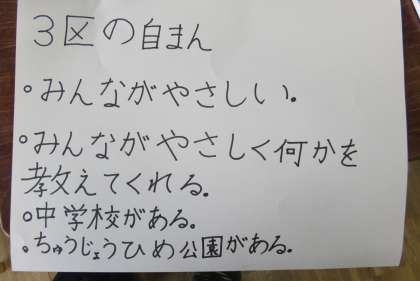 3区の自まん
。みんながやさしい.
。みんながやさしく何かを
教えてくれる.
。中学校がある.
。ちゅうじょうひめ公園がある.